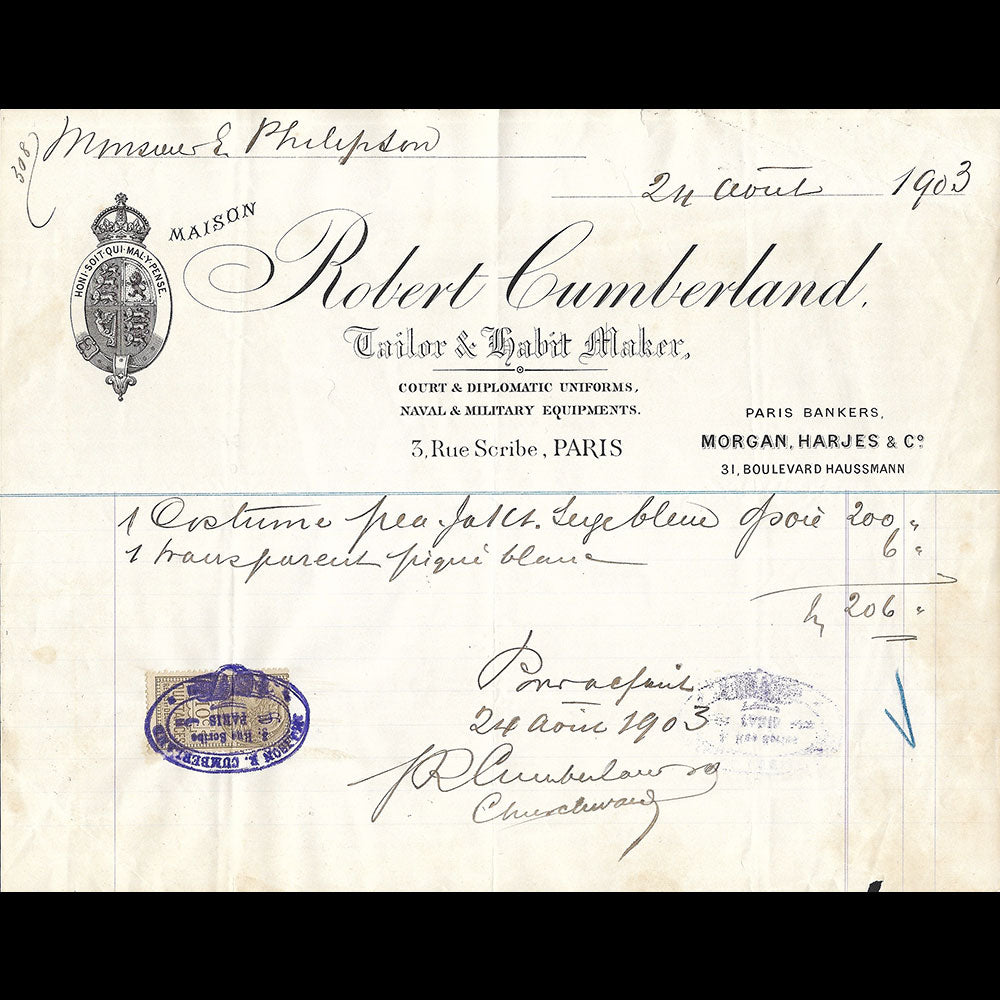 308
Monsieur E Philipson
24 Août 1903
HONI·SOIT·QUI·MAL·Y·PENSE.
MAISON
Robert Cumberland,
Tailor & Habit Maker,
COURT & DIPLOMATIC UNIFORMS,
NAVAL & MILITARY EQUIPMENTS.
3, Rue Scribe, PARIS
PARIS BANKERS,
MORGAN, HARJES & Cº
31, BOULEVARD HAUSSMANN
1 Costume pea-Jakt. Serge bleue 200 "
1 transparent piqué blanc 6 "
206 "
Pour acquit
24 Août 1903
R Cumberland
Churchward
MAISON R. CUMBERLAND
3, Rue Scribe
PARIS